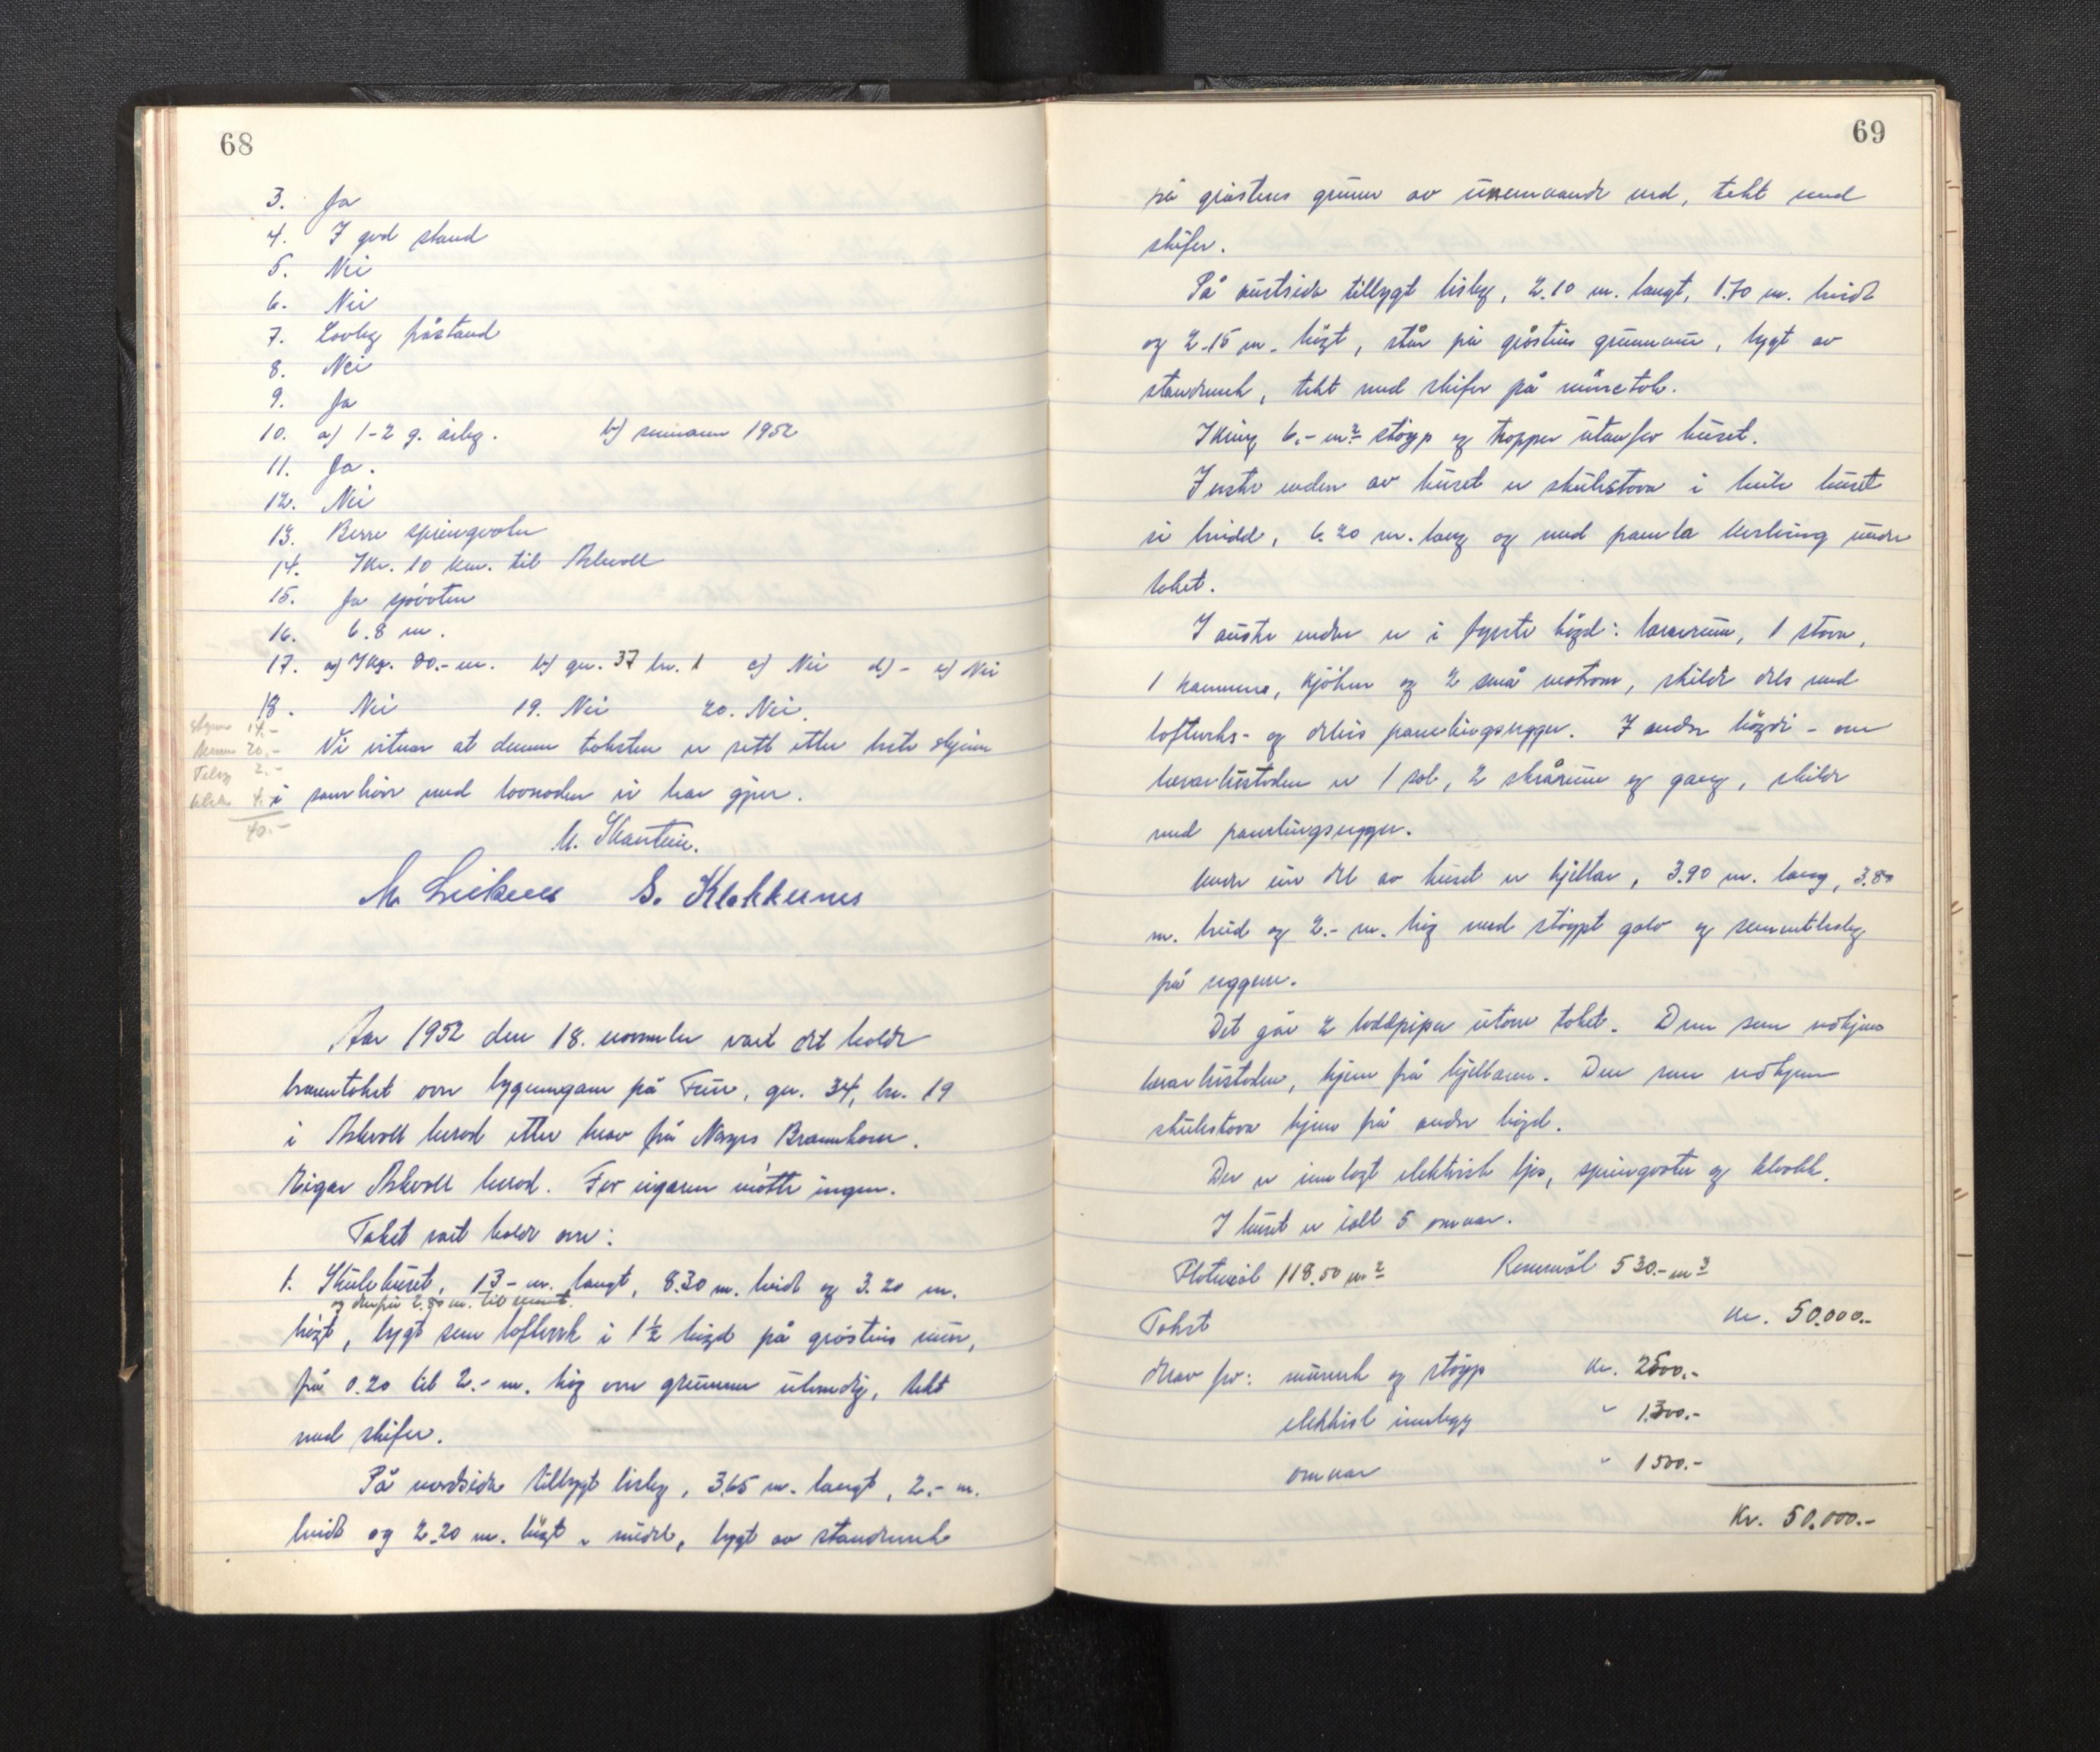 68
3. Ja
4. I god stand
5. Nei
6. Nei
7. Lovleg påstand
8. Nei
9. Ja
10. a) 1-2 g. årleg. b) sumaren 1952
11. Ja.
12. Nei
13. Berre springvatn
14. Ikr. 10 km. til Askvoll
15. Ja sjøvatn
16. 6.8 m.
17. a) Ikr. 80.- m. b) gn. 37 bn. 1 c) Nei d) - e) Nei
18. Nei 19. Nei 20. Nei.
14.-
20.-
2.-
4.-
40.-
Vi vitnar at denne taksten er sett etter beste skjønn
i samhøve med lovnaden vi har gjeve.
M. Leiknes S. Klokkernes
Aar 1952 den 18. november vart det halde
branntakst over bygningane på Fure, gn. 34, bn. 19
i Askvoll herad etter krav frå Noregs Brannkasse.
Eigar Askvoll herad. For eigaren møtte ingen.
Takst vart halde over:
1. Skulehuset, 13.- m. langt, 8.30 m. bridt og 3.20 m.
høgt, bygt som loftverk i 1½ høgd på gråsteins mur,
frå 0.20 til 2.- m. høg over grunnen utvendig, tekt
med skifer.
På nordsida tilbygt bislag, 3.65 m. langt, 2.- m.
bridt og 2.20 m. høgt i middel, bygt av standverk
69
på gråsteins grunn av uvemande ved, tekt med
skifer.
På austsida tilbygt bislag, 2.10 m. langt, 1.70 m. bridt
og 2.15 m. høgt, står på gråsteins grunnmur, bygt av
standverk, tekt med skifer på mønetak.
Ikring 6.- m² støyp og trapper utanfor huset.
I vestre enden av huset er skulestova i heile huset
si bridd, 6.20 m. lang og med panela kvelving under
taket.
I austre enden er i fyrste høgd: lærerrum, 1 stova,
1 kammers, kjøken og 2 små matrom, skilde dels med
loftverks- og delvis panelingsvegger. I andre høgdi - over
lærarbustaden er 1 sal, 2 skrårum og gang, skilde
med panelingsvegger.
Under ein del av huset er kjellar, 3.90 m. lang, 3.80
m. brid og 2.- m. høg med støypt golv og sementbeslag
på veggene.
Det går 2 loddpiper utover taket. Den som vedkjem
lærarbustaden, kjem frå kjellaren. Den som vedkjem
skulestova kjem frå andre høgd.
Der er innlagt elektrisk ljos, springvatn og kloakk.
I huset er ialt 5 omnar.
Flatemål 118.50 m² Romemål 530.- m³
Takst kr. 50.000.-
Herav for: murverk og støyp kr. 2500.-
elektrisk innlegg " 1.300.-
omnar " 1500.-
Kr. 50.000.-